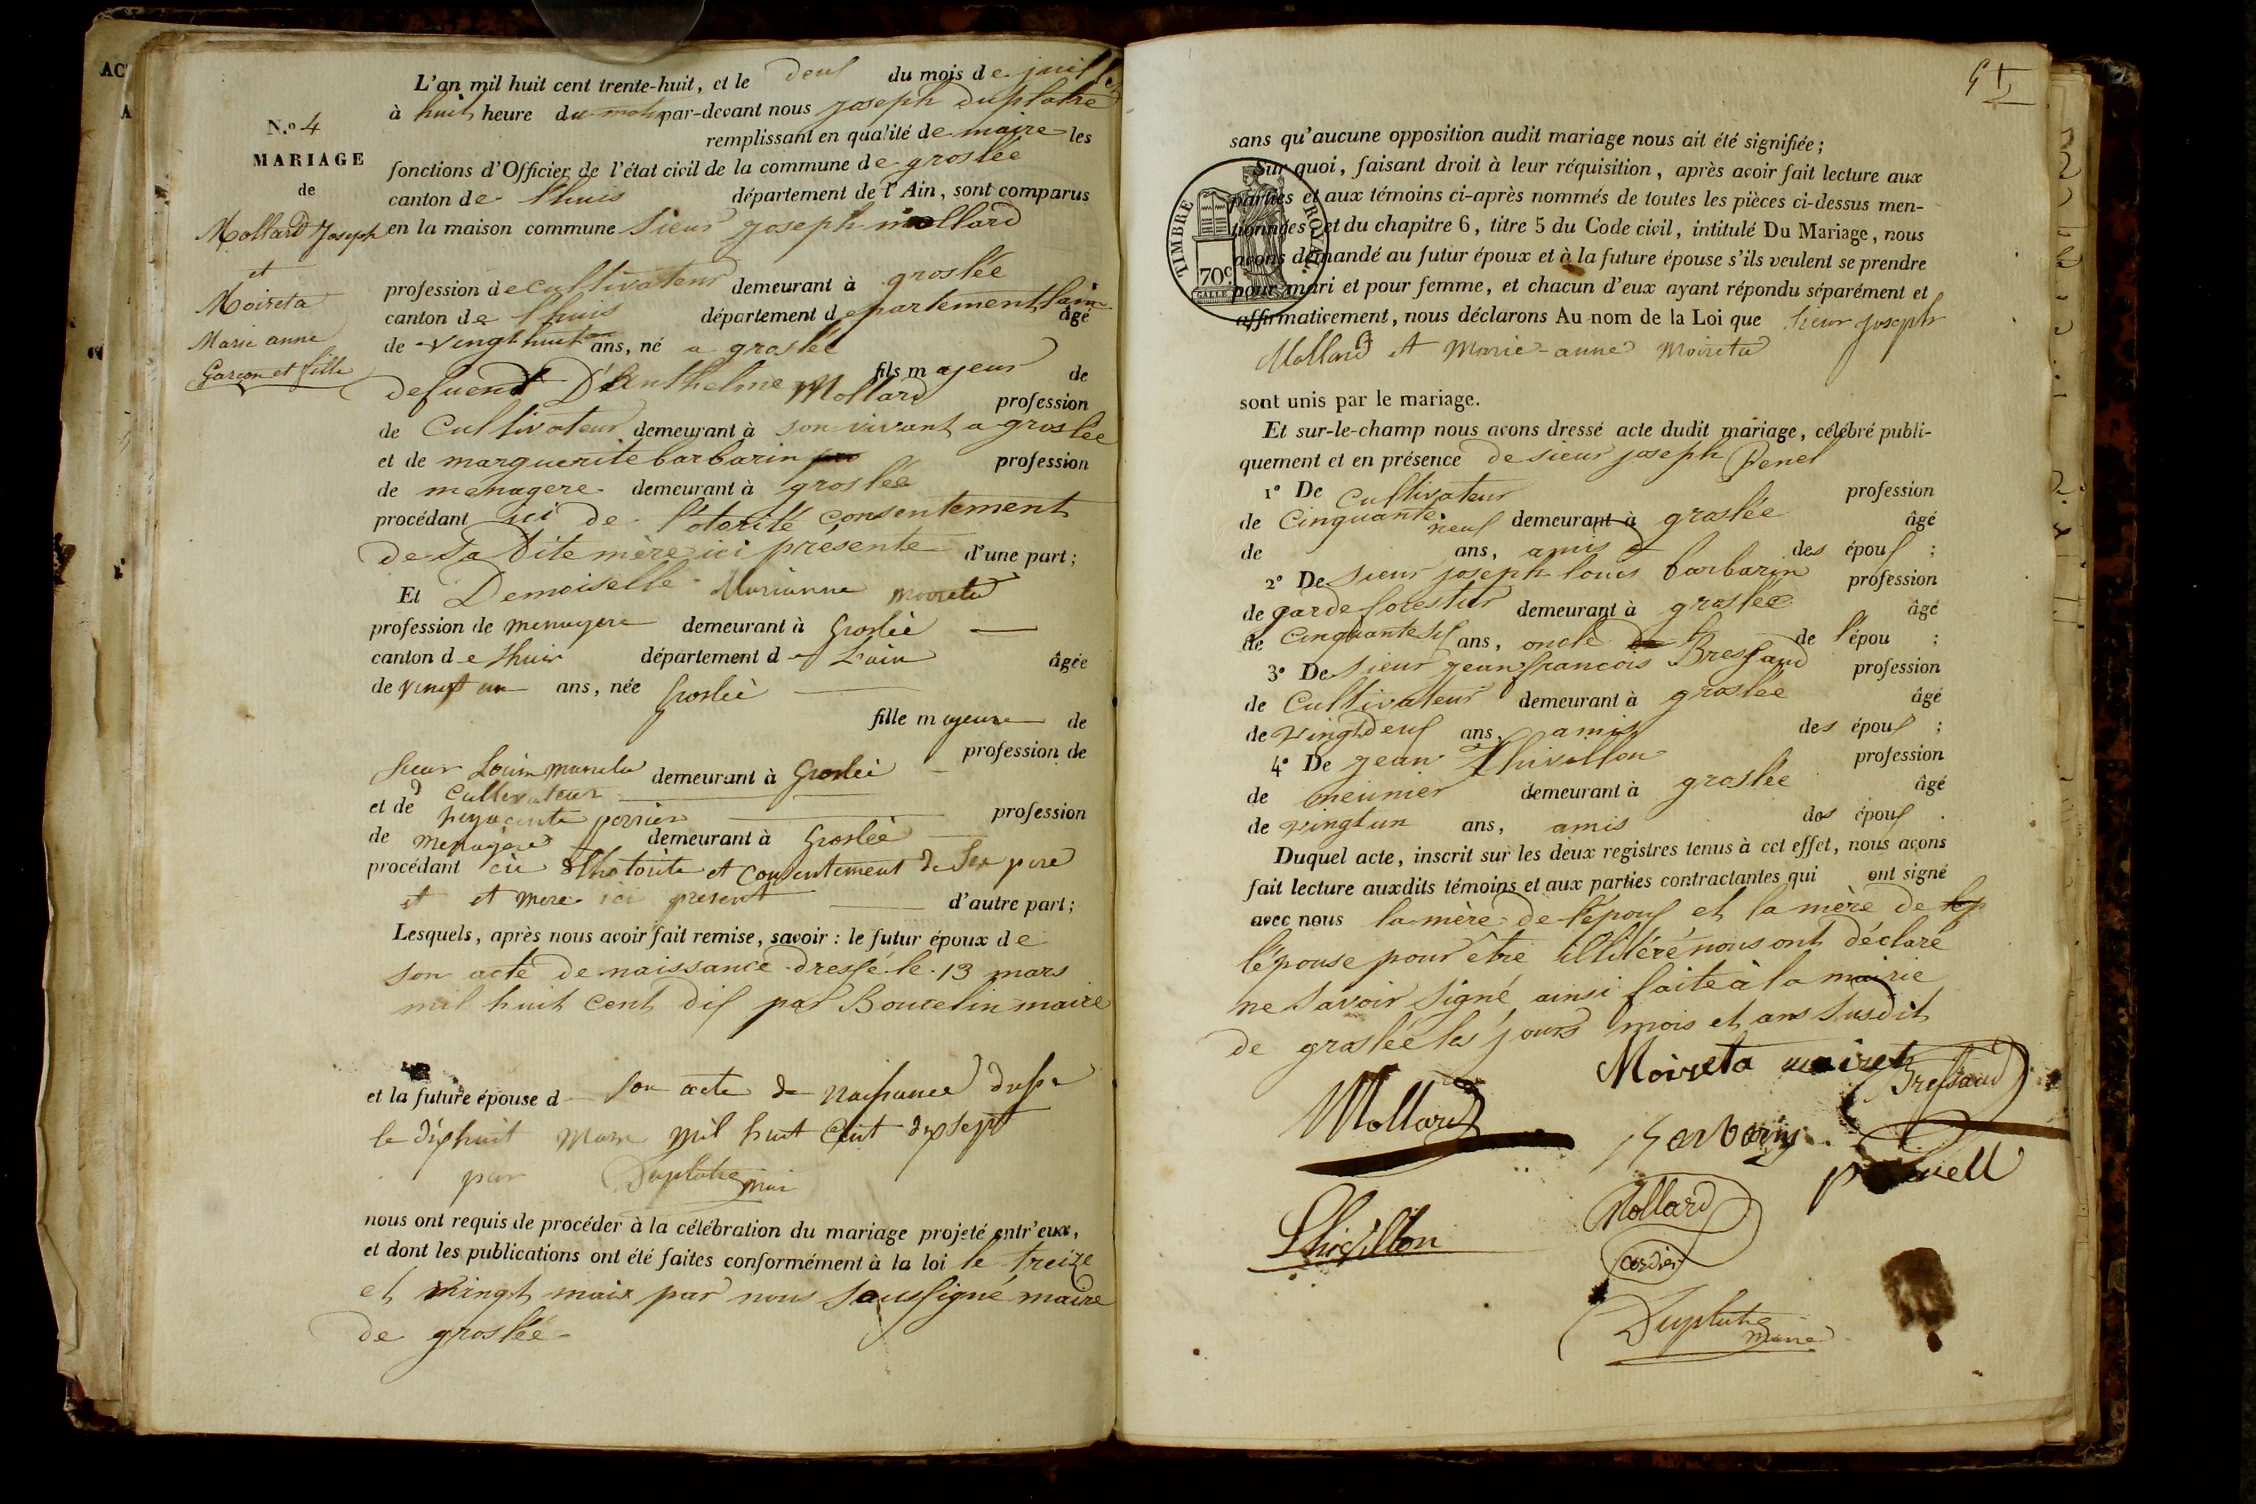 AC
A
N.º 4
MARIAGE
de
Mollard Joseph
et
Moireta
Marie anne
Garçon et fille
L'an mil huit cent trente-huit, et le deux du mois de juillet
à huit heure du matin par-devant nous joseph duplatre
remplissant en qualité de maire les
fonctions d'Officier de l'état civil de la commune de groslée
canton de l'huis département de l'Ain, sont comparus
en la maison commune Sieur joseph mollard
profession de cultivateur demeurant à groslée
canton de l'huis département departement l'ain âgé
de vingt huit ans, né a groslée
fils majeur de
defuent D'Anthelme Mollard profession
de Cultivateur demeurant à son vivant a groslée
et de marguerite barbarin profession
de menagere demeurant à groslée
procédant ici de l'otorité consentement
de sa dite mère ici présente d'une part;
Et Demoiselle Marianne moireta
profession de menagere demeurant à Groslée
canton de Lhuis département de L'ain âgée
de vingt un ans, née Groslée
fille majeure de
profession de
Sieur Louis demeurant à Groslée
cultivateur
et de hyacinte perrier profession
de menagère demeurant à Groslée
procédant et consentement de Ses pere
et et mere ici present d'autre part;
Lesquels, après nous avoir fait remise, savoir : le futur époux de
son acte de naissance dressé le 13 mars
mil huit cent dix par Boucelin maire
et la future épouse d son acte de naissance dressé
le dixhuit Mars mil huit Cent dixsept
par Duplatre maire
nous ont requis de procéder à la célébration du mariage projeté entr'eux,
et dont les publications ont été faites conformément à la loi le treize
et vingt maix par nous soussigné maire
de groslée
sans qu'aucune opposition audit mariage nous ait été signifiée;
Sur quoi, faisant droit à leur réquisition, après avoir fait lecture aux
parties et aux témoins ci-après nommés de toutes les pièces ci-dessus men-
tionnées et du chapitre 6, titre 5 du Code civil, intitulé Du Mariage, nous
avons demandé au futur époux et à la future épouse s'ils veulent se prendre
pour mari et pour femme, et chacun d'eux ayant répondu séparément et
affirmativement, nous déclarons Au nom de la Loi que Sieur joseph
Mollard et Marie-anne Moireta
TIMBRE ROYAL.
70c
sont unis par le mariage.
Et sur-le-champ nous avons dressé acte dudit mariage, célébré publi-
quement et en présence de sieur joseph Penel
1º De Cultivateur profession
de Cinquante neuf demeurant à groslée âgé
de ans, amis des époux ;
2º De Sieur joseph louis barbarin profession
de garde forestier demeurant à groslée âgé
de Cinquante six ans, oncle de l'épou ;
3º De Sieur jean francois Bressand profession
de Cultivateur demeurant à groslée âgé
de vingt deux ans, amis des époux ;
4º De jean Thivollon profession
de meunier demeurant à groslée âgé
de vingt un ans, amis des époux .
Duquel acte, inscrit sur les deux registres tenus à cet effet, nous avons
fait lecture auxdits témoins et aux parties contractantes qui ont signé
avec nous la mère de l'époux et la mère de
l'épouse pour être illitéré nous ont déclaré
ne savoir signé ainsi faite à la mairie
de groslée les jours mois et ans Susdit
Moireta moireta
Bressand
Mollard
Barbarin
Mollard
Thivillon
Cordier
Duplatre
maire